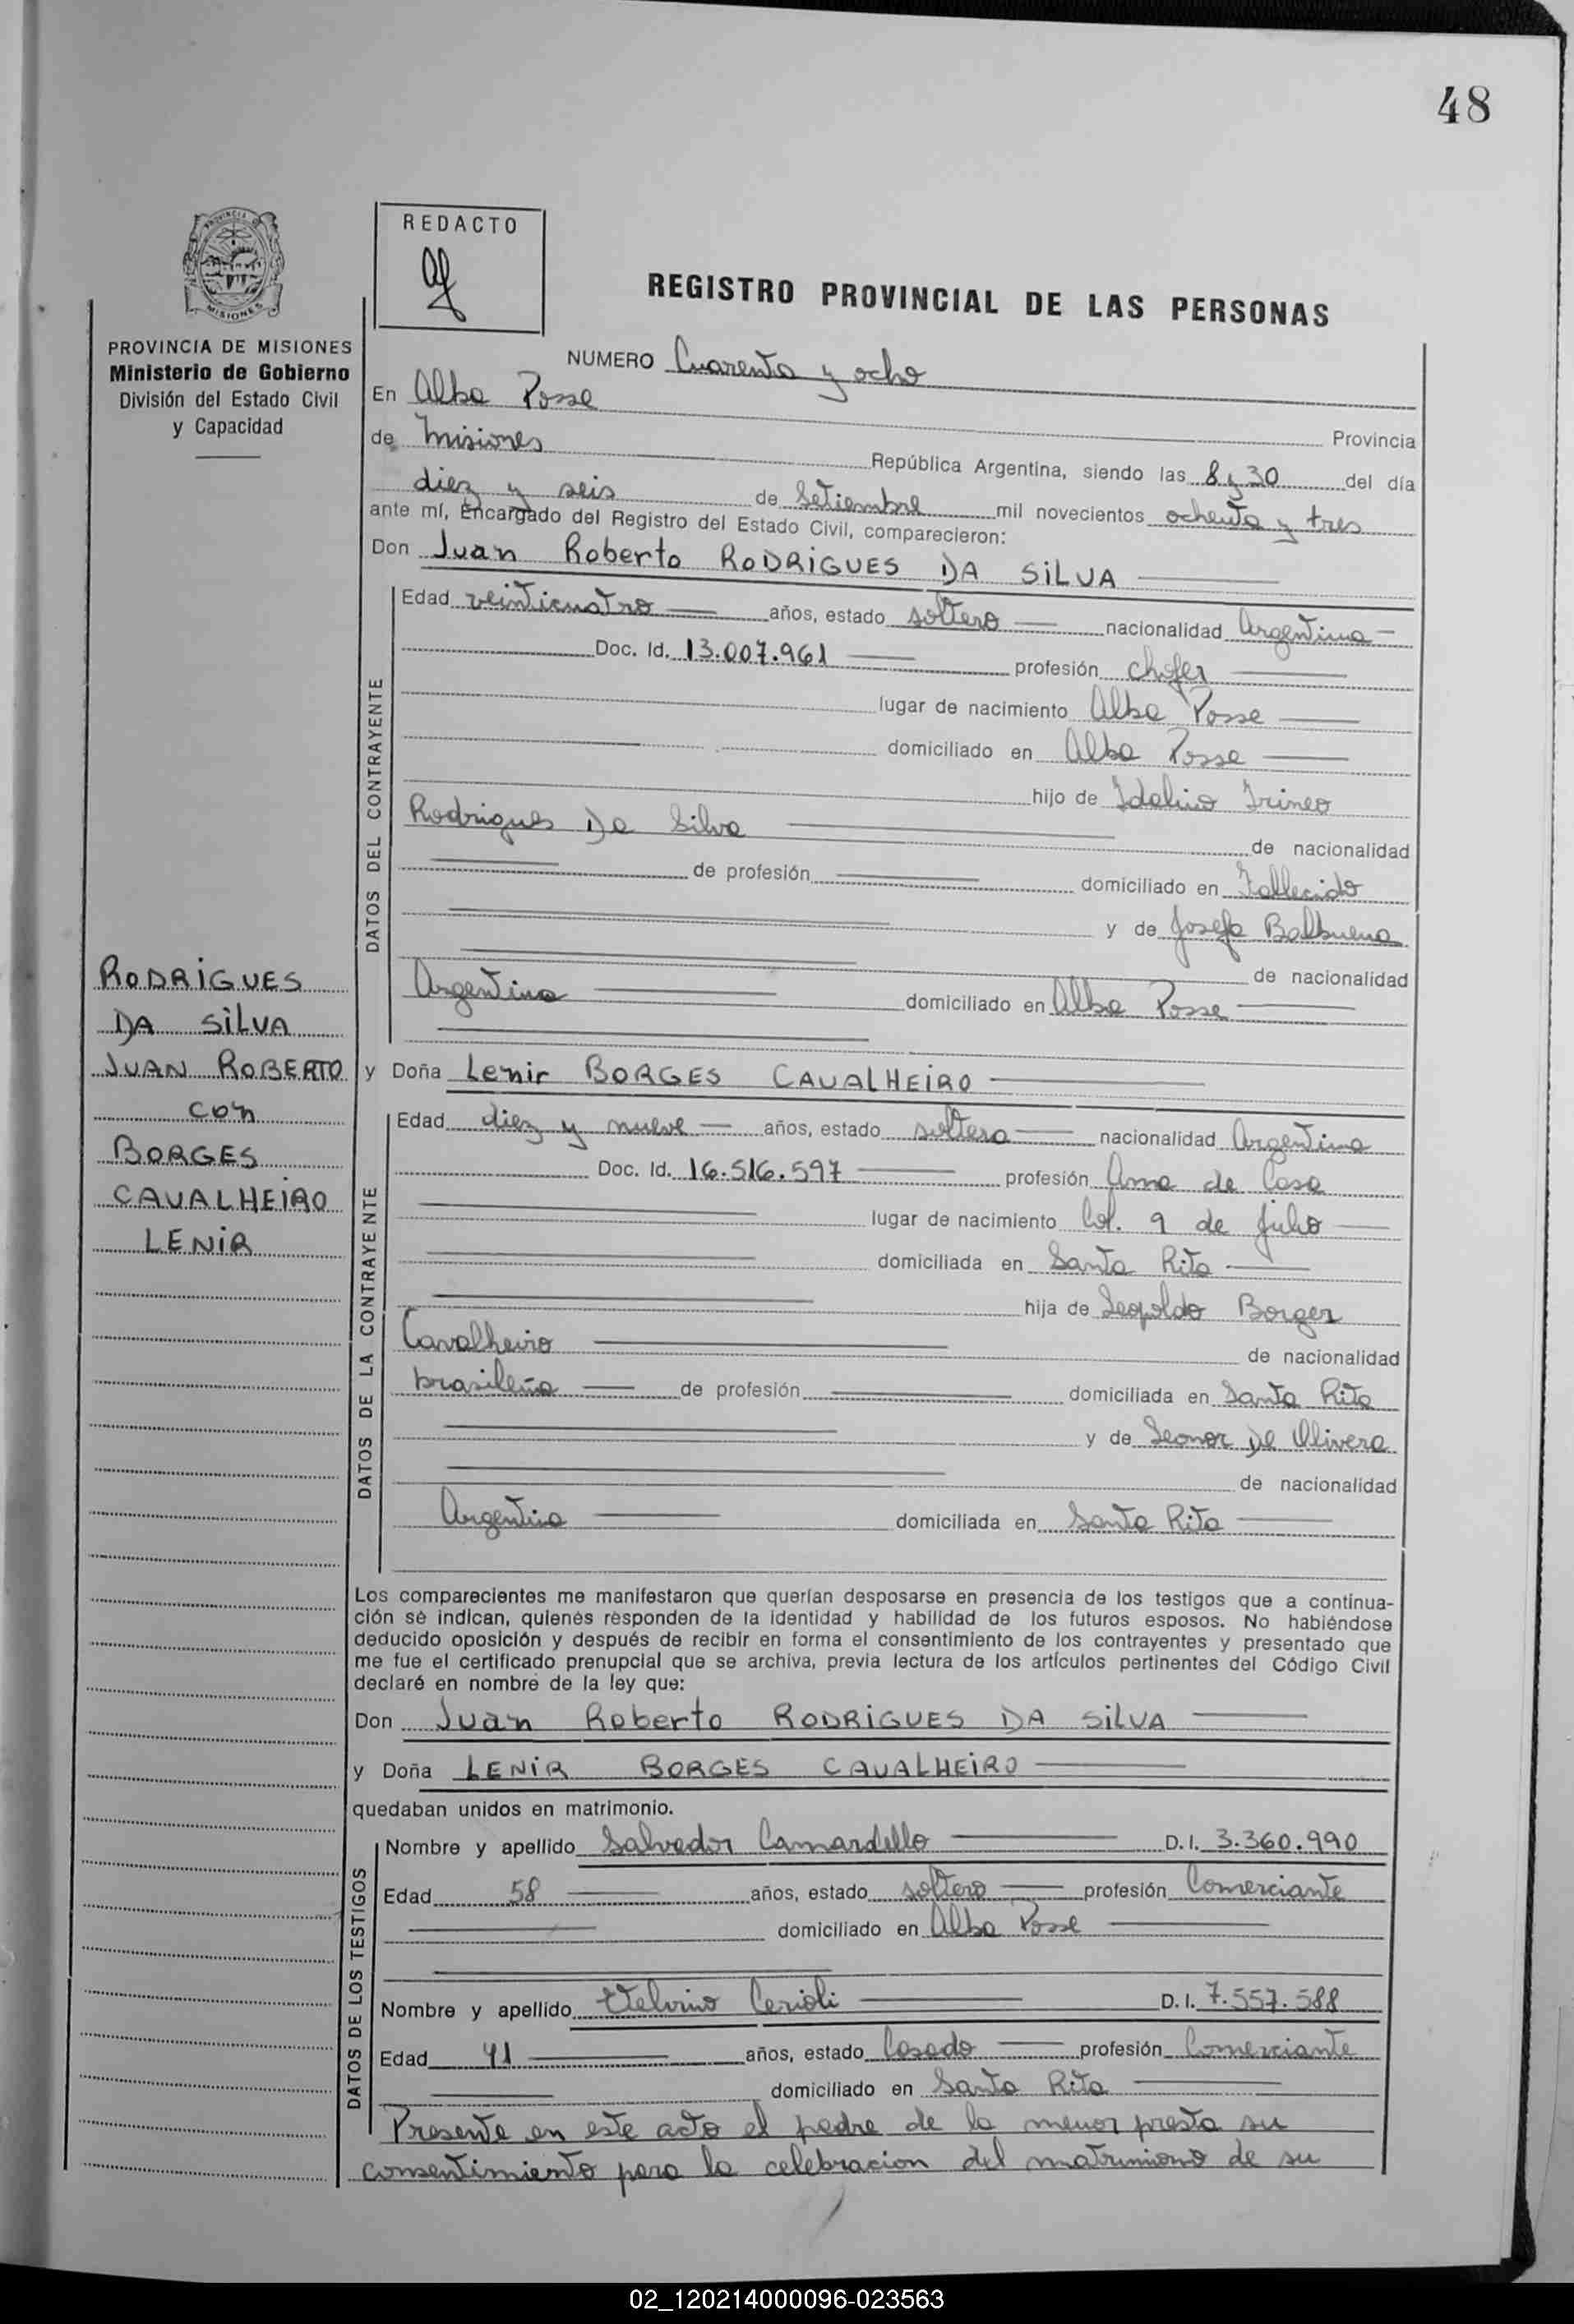 48
PROVINCIA DE MISIONES
Ministerio de Gobierno
División del Estado Civil
y Capacidad
REDACTO
REGISTRO PROVINCIAL DE LAS PERSONAS
NUMERO Cuarenta y ocho
En Alba Posse
Provincia
de Misiones República Argentina, siendo las 8 y 30 del día
diez y seis de Setiembre mil novecientos ochenta y tres
ante mí, Encargado del Registro del Estado Civil, comparecieron:
Don Juan Roberto RODRIGUES DA SILVA
DATOS DEL CONTRAYENTE
Edad veinticuatro años, estado soltero nacionalidad Argentina
Doc. Id. 13.007.961 profesión chofer
lugar de nacimiento Alba Posse
domiciliado en Alba Posse
hijo de Idalino Irineo
Rodrigues Da Silva de nacionalidad
de profesión domiciliado en Fallecido
y de Josefa Balbuena
de nacionalidad
Argentina domiciliado en Alba Posse
RODRIGUES
DA SILVA
JUAN ROBERTO
con
BORGES
CAVALHEIRO
LENIR
y Doña Lenir BORGES CAVALHEIRO
DATOS DE LA CONTRAYENTE
Edad diez y nueve años, estado soltera nacionalidad Argentina
Doc. Id. 16.516.597 profesión Ama de Casa
lugar de nacimiento Col. 9 de Julio
domiciliada en Santa Rita
hija de Leopoldo Borger
Cavalheiro de nacionalidad
brasileña de profesión domiciliada en Santa Rita
y de Leonor De Olivera
de nacionalidad
Argentina domiciliada en Santa Rita
Los comparecientes me manifestaron que querían desposarse en presencia de los testigos que a continua-
ción se indican, quienes responden de la identidad y habilidad de los futuros esposos. No habiéndose
deducido oposición y después de recibir en forma el consentimiento de los contrayentes y presentado que
me fue el certificado prenupcial que se archiva, previa lectura de los artículos pertinentes del Código Civil
declaré en nombre de la ley que:
Don Juan Roberto RODRIGUES DA SILVA
y Doña LENIR BORGES CAVALHEIRO
quedaban unidos en matrimonio.
DATOS DE LOS TESTIGOS
Nombre y apellido Salvador Camardello D.I. 3.360.990
Edad 58 años, estado soltero profesión Comerciante
domiciliado en Alba Posse
Nombre y apellido Etelvino Cerioli D.I. 7.557.588
Edad 41 años, estado Casado profesión Comerciante
domiciliado en Santa Rita
Presente en este acto el padre de la menor presta su
consentimiento para la celebracion del matrimonio de su
02_120214000096-023563